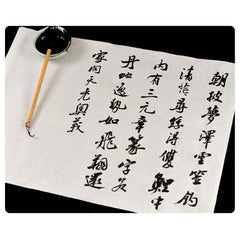 朝披夢澤雲笠釣
清尋絲得雙鯉中
内有三元章篆字若
丹蛇逸勢如飛翔還
家問天老奧義